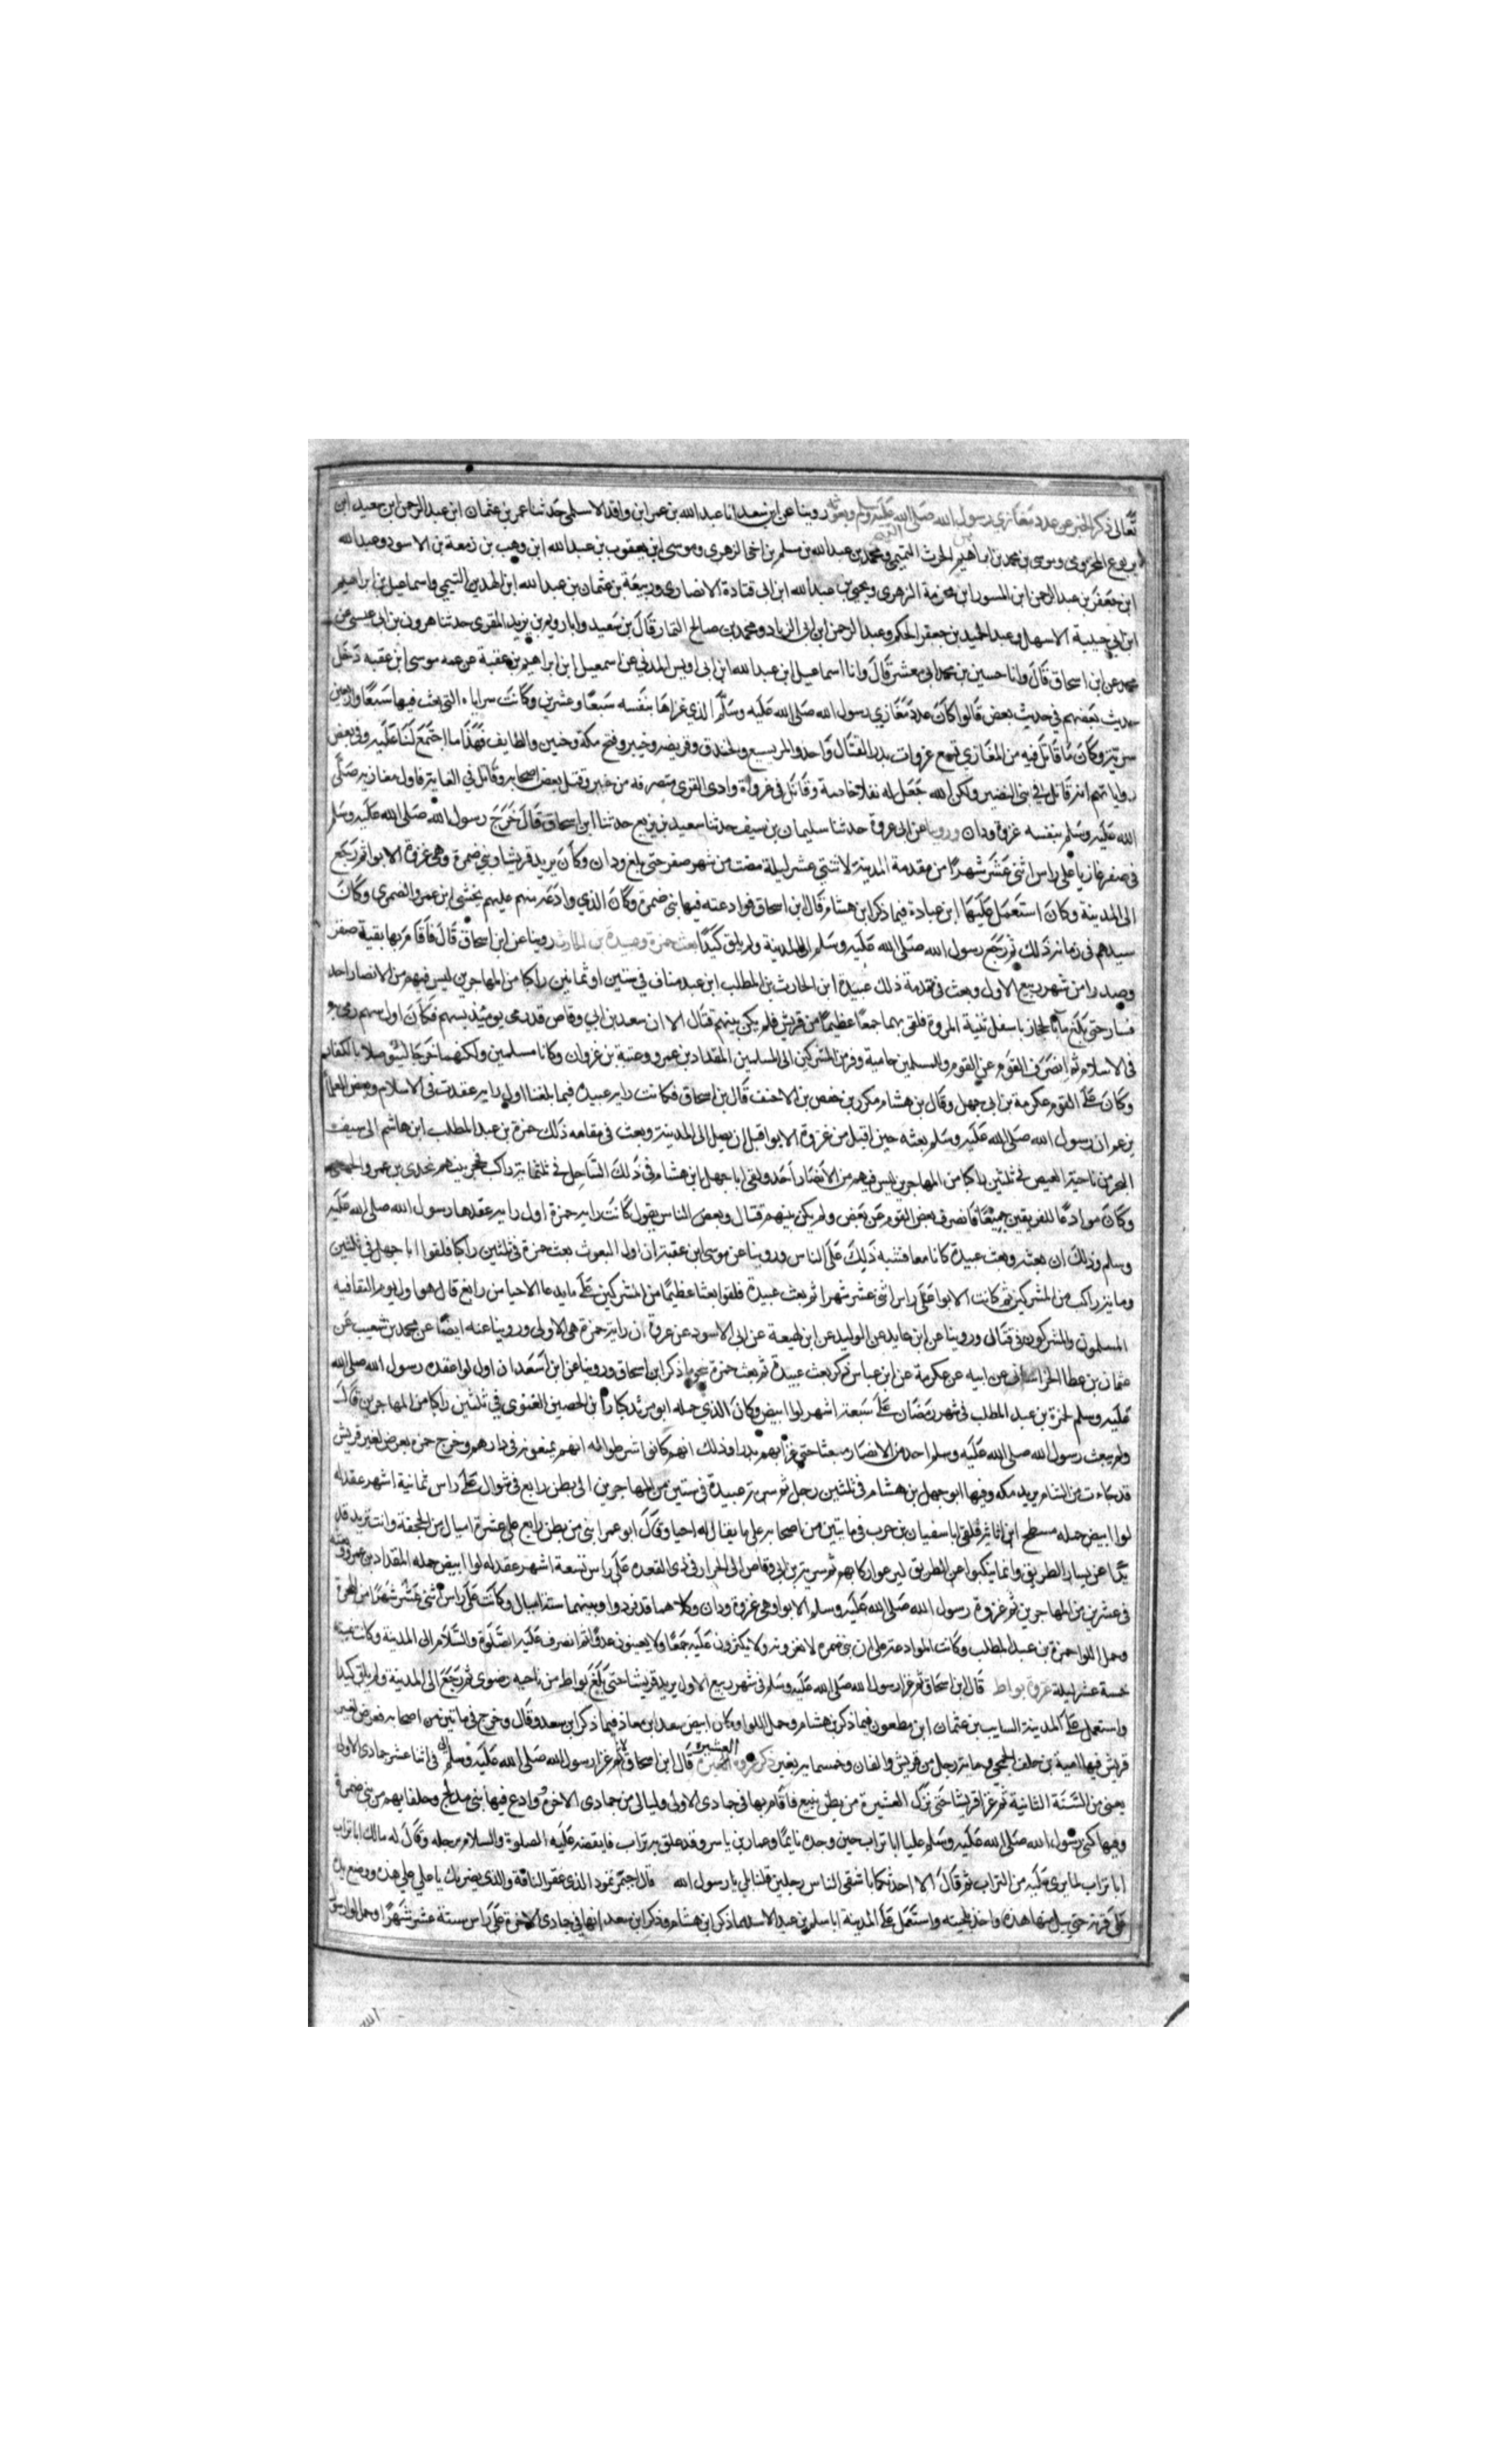 تعالى ذكر الخبر عن عدد مغازي رسول الله صلى الله عليه وسلم وبعوثه روينا عن ابن سعد انا عبد الله بن عمر ابن واقد الاسلمي حدثنا عمر بن عثمان ابن عبد الرحمن ابن سعيد ابن
يربوع المخزومي وموسى بن محمد بن ابراهيم الحرث التيمي ومحمد بن عبد الله بن سلم بن اخي الزهري وموسى ابن يعقوب بن عبد الله ابن وهب بن زمعة بن الاسود وعبد الله
ابن جعفر بن عبد الرحمن ابن المسور ابن مخرمة الزهري ويحيى بن عبد الله ابن ابي قتادة الانصاري وربيعة بن عثمان بن عبد الله ابن الهدير التيمي واسماعيل بن ابراهيم
ابن ابي حبيبة الاسهلي وعبد الحميد بن جعفر الحكم وعبد الرحمن ابن ابي الزياد ومحمد بن صالح التمار قال بن سعيد وانا رويم بن يزيد المقري حدثنا هرون بن ابي عيسى عن
محمد عن ابن اسحاق قال وانا حسين بن محمد ابي معشر قال وانا اسماعيل ابن عبد الله ابن ابي اويس المدني عن اسمعيل ابن ابراهيم بن عقبة عن عمه موسى ابن عقبه دخل
حديث بعضهم في حديث بعض قالوا كان عدد مغازي رسول الله صلى الله عليه وسلم الذي غزاها بنفسه سبعا وعشرين وكانت سراياه التي بعث فيها سبعا واربعين
سرية وكان ما قاتل فيه من المغازي تسع غزوات بدر القتال واحد والمريسيع والخندق وقريضه وخيبر وفتح مكة وحنين والطايف فهذا ما اجتمع لنا عليه وفي بعض
رواياتهم انه قاتل في بني النضير ولكن الله جعل له نفلا خاصة وقاتل في غزواة وادي القرى منصرفه من خيبر وقتل بعض اصحابه وقاتل في الغابة فاول مغازيه صلى
الله عليه وسلم بنفسه غزوة ودان وروينا عن ابي عروة حدثنا سليمان بن سيف حدثنا سعيد بن بزيع حدثنا ابن اسحاق قال خرج رسول الله صلى الله عليه وسلم
في صفر غازيا على راس اثنى عشر شهرا من مقدمه المدينة لاثنتي عشر ليلة مضت من شهر صفر حتى بلغ ودان وكان يريد قريشا وبني ضمرة وهي غزوة الابوا ثم رجع
الى المدينة وكان استعمل عليها ابن عبادة فيما ذكر ابن هشام قال ابن اسحاق فوادعته فيها بني ضمرة وكان الذي وادعه منهم عليهم مخشي ابن عمرو الضمري وكان
سيدهم في زمانه ذلك ثم رجع رسول الله صلى الله عليه وسلم الى المدينة ولم يلق كيدا بعث حمزة وعبيدة بن الحارث روينا عن ابن اسحاق قال فاقام بها بقية صفر
وصدرا من شهر ربيع الاول وبعث في مقدمة ذلك عبيدة ابن الحارث بن المطلب ابن عبد مناف في ستين او ثمانين راكبا من المهاجرين ليس فيهم من الانصار احد
فسار حتى بلغ ماء بالحجاز باسفل ثنية المروة فلقي بها جمعا عظيما من قريش فلم يكن بينهم قتال الا ان سعد بن ابي وقاص قد رمى يوميذ بسهم فكان اول سهم رمي به
في الاسلام ثم انصرف القوم عن القوم والمسلمين حامية وفر من المشركين الى المسلمين المقداد بن عمرو وعتبة بن غزوان وكانا مسلمين ولكنهما خرجا ليتوصلا بالكفار
وكان على القوم عكرمة بن ابي جهل وقال بن هشام مكرز بن حفص بن الاخنف قال بن اسحاق فكانت راية عبيدة فيما بلغنا اول راية عقدت في الاسلام وبعض العلما
يزعم ان رسول الله صلى الله عليه وسلم بعثه حين اقبل من غزوة الابوا قبل ان يصل الى المدينة وبعث في مقامه ذلك حمزة بن عبد المطلب ابن هاشم الى سيف
البحر من ناحية العيص في ثلثين راكبا من المهاجرين ليس فيهم من الانصار احد ولقي ابا جهل ابن هشام في ذلك الساحل في ثلثماية راكب فحجز بينهم مجدي بن عمرو الجهني
وكان موادعا للفريقين جميعا فانصرف بعض القوم عن بعض ولم يكن بينهم قتال وبعض الناس يقول كانت راية حمزة اول راية عقدها رسول الله صلى الله عليه
وسلم وذلك ان بعثه وبعث عبيدة كانا معا فشبه ذلك على الناس وروينا عن موسى ابن عقبة ان اول البعوث بعث حمزة في ثلثين راكبا فلقوا ابا جهل في ثلثين
وماية راكب من المشركين ثم كانت الابوا على راس اثنى عشر شهرا ثم بعث عبيدة فلقوا بعثا عظيما من المشركين على ما يدعا الاحيا من رابغ قال هو اول يوم التقا فيه
المسلمون والمشركون في قتال وروينا عن ابن عايد عن الوليد عن ابن لهيعة عن ابي الاسود عن عروة ان راية حمزة هي الاولى وروينا عنه ايضا عن محمد بن شعيب عن
عثمان بن عطا الخراساني عن ابيه عن عكرمة عن ابن عباس ذكر بعث عبيدة ثم بعث حمزة نحو ما ذكر ابن اسحاق وروينا عن ابن اسعد ان اول لوا عقده رسول الله صلى الله
عليه وسلم لحمزة بن عبد المطلب في شهر رمضان على سبعة اشهر لوا ابيض وكان الذي حمله ابو مرثد كناز ابن الحصين الغنوي في ثلثين راكبا من المهاجرين قال
ولم يبعث رسول الله صلى الله عليه وسلم احد من الانصار مبعثا حتى غزا بهم بدرا وذلك انهم كانوا شرطوا له انهم يمنعونه في دارهم وخرج حمزة يعرض لعير قريش
قد جاءت من الشام يريد مكه وفيها ابو جهل بن هشام في ثلثين رجل ثم سرية عبيدة في ستين من المهاجرين الى بطن رابع في شوال على راس ثمانية اشهر عقد له
لوا ابيض حمله مسطح ابن اثاثة فلقي ابا سفيان بن حرب في مايتين من اصحابه على ما يقال له احيا وقال ابو عمر ابني من بطن رابع على عشرة اميال من الجحفة وانت تريد قد
يدا عن يسار الطريق وانما نيكبوا عن الطريق ليرعوا ركابهم ثم سرية بن ابي وقاص الى الخرار في ذي القعده على راس تسعة اشهر عقد له لوا ابيض حمله المقداد بن عمرو وبعثه
في عشرين من المهاجرين ثم غزوة رسول الله صلى الله عليه وسلم الابوا وهي غزوة ودان وكلاهما قد وردوا وبينهما ستة اميال وكانت على راس اثنى عشر شهرا من الهجرة
وحمل اللوا حمزة بن عبد المطلب وكانت الموادعة على ان بني ضمره لا يغزونه ولا يكثرون عليه جمعا ولا يعينون عدوا ثم انصرف عليه الصلوة والسلام الى المدينة وكانت غيبته
خمسة عشر ليلة غزوة بواط قال ابن اسحاق ثم غزا رسول الله صلى الله عليه وسلم في شهر ربيع الاول يريد قريشا حتى بلغ بواط من ناحيه رضوى ثم رجع الى المدينة ولم يلق كيدا
واستعمل على المدينة السايب بن عثمان ابن مظعون فيما ذكر بن هشام وحمل اللوا وكان ابيض سعد ابن معاذ فيما ذكر ابن سعد وقال وخرج في مايتين من اصحابه فعرض لعير
قريش فيها امية بن خلف الجمحي وماية رجل من قريش والفان وخمسماية بعير ذكر غزوة العشيرة قال ابن اسحاق ثم غزا رسول الله صلى الله عليه وسلم في اثنا عشر جمادى الاولى
يعني من السنة الثانية ثم غزا قريشا حتى نزل العشيرة من بطن ينبع فاقام بها في جمادى الاولى وليالي من جمادى الاخرة وادع فيها بني مدلج وحلفايهم من بني ضمرة
وفيها كنى رسول الله صلى الله عليه وسلم عليا ابا تراب حين وجده نايما وعمار بن ياسر وقد علق به تراب فايقضه عليه الصلوة والسلام برجله وقال له مالك ابا تراب
ابا تراب لما يرى عليه من التراب ثم قال الا احدثكما باشقى الناس رجلين قلنا بلى يا رسول الله قال احيمر ثمود الذي عقر الناقة والذي يضربك يا علي على هذه ووضع يده
على قرنه حتى يبل منها هذه واخذ بلحيته واستعمل على المدينة ابا سلم بن عبد الاسد فيما ذكر ابن هشام وذكر ابن سعد انها في جمادى الاخرة على راس ستة عشر شهرا وحمل لوا